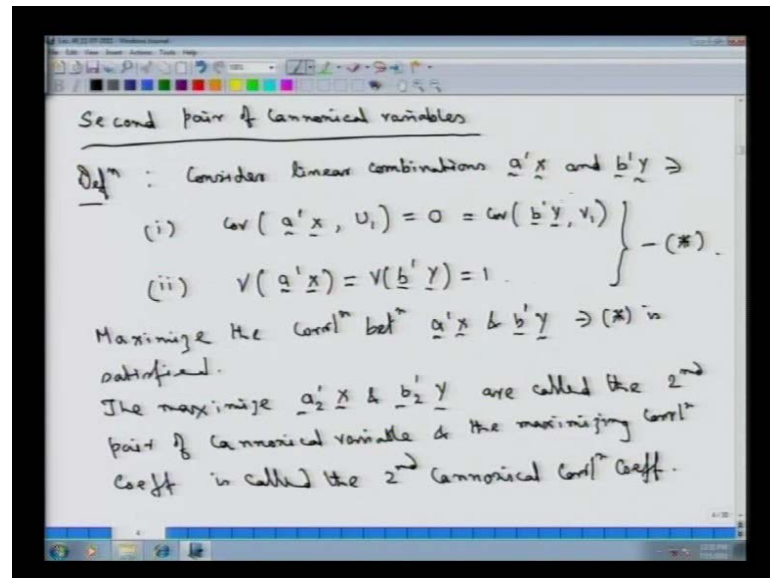 Second pair of Cannonical variables
Defⁿ : Consider linear combinations a'x and b'y ∋
(i) Cov(a'x, U₁) = 0 = Cov(b'y, V₁)
(ii) V(a'x) = V(b'y) = 1. } — (*).
Maximize the Corrlⁿ betⁿ a'x & b'y ∋ (*) is
satisfied.
The maximize a₂'x & b₂'y are called the 2nd
pair of Cannonical variable & the maximizing corrlⁿ
Coeff is called the 2nd Cannonical Corrlⁿ Coeff.